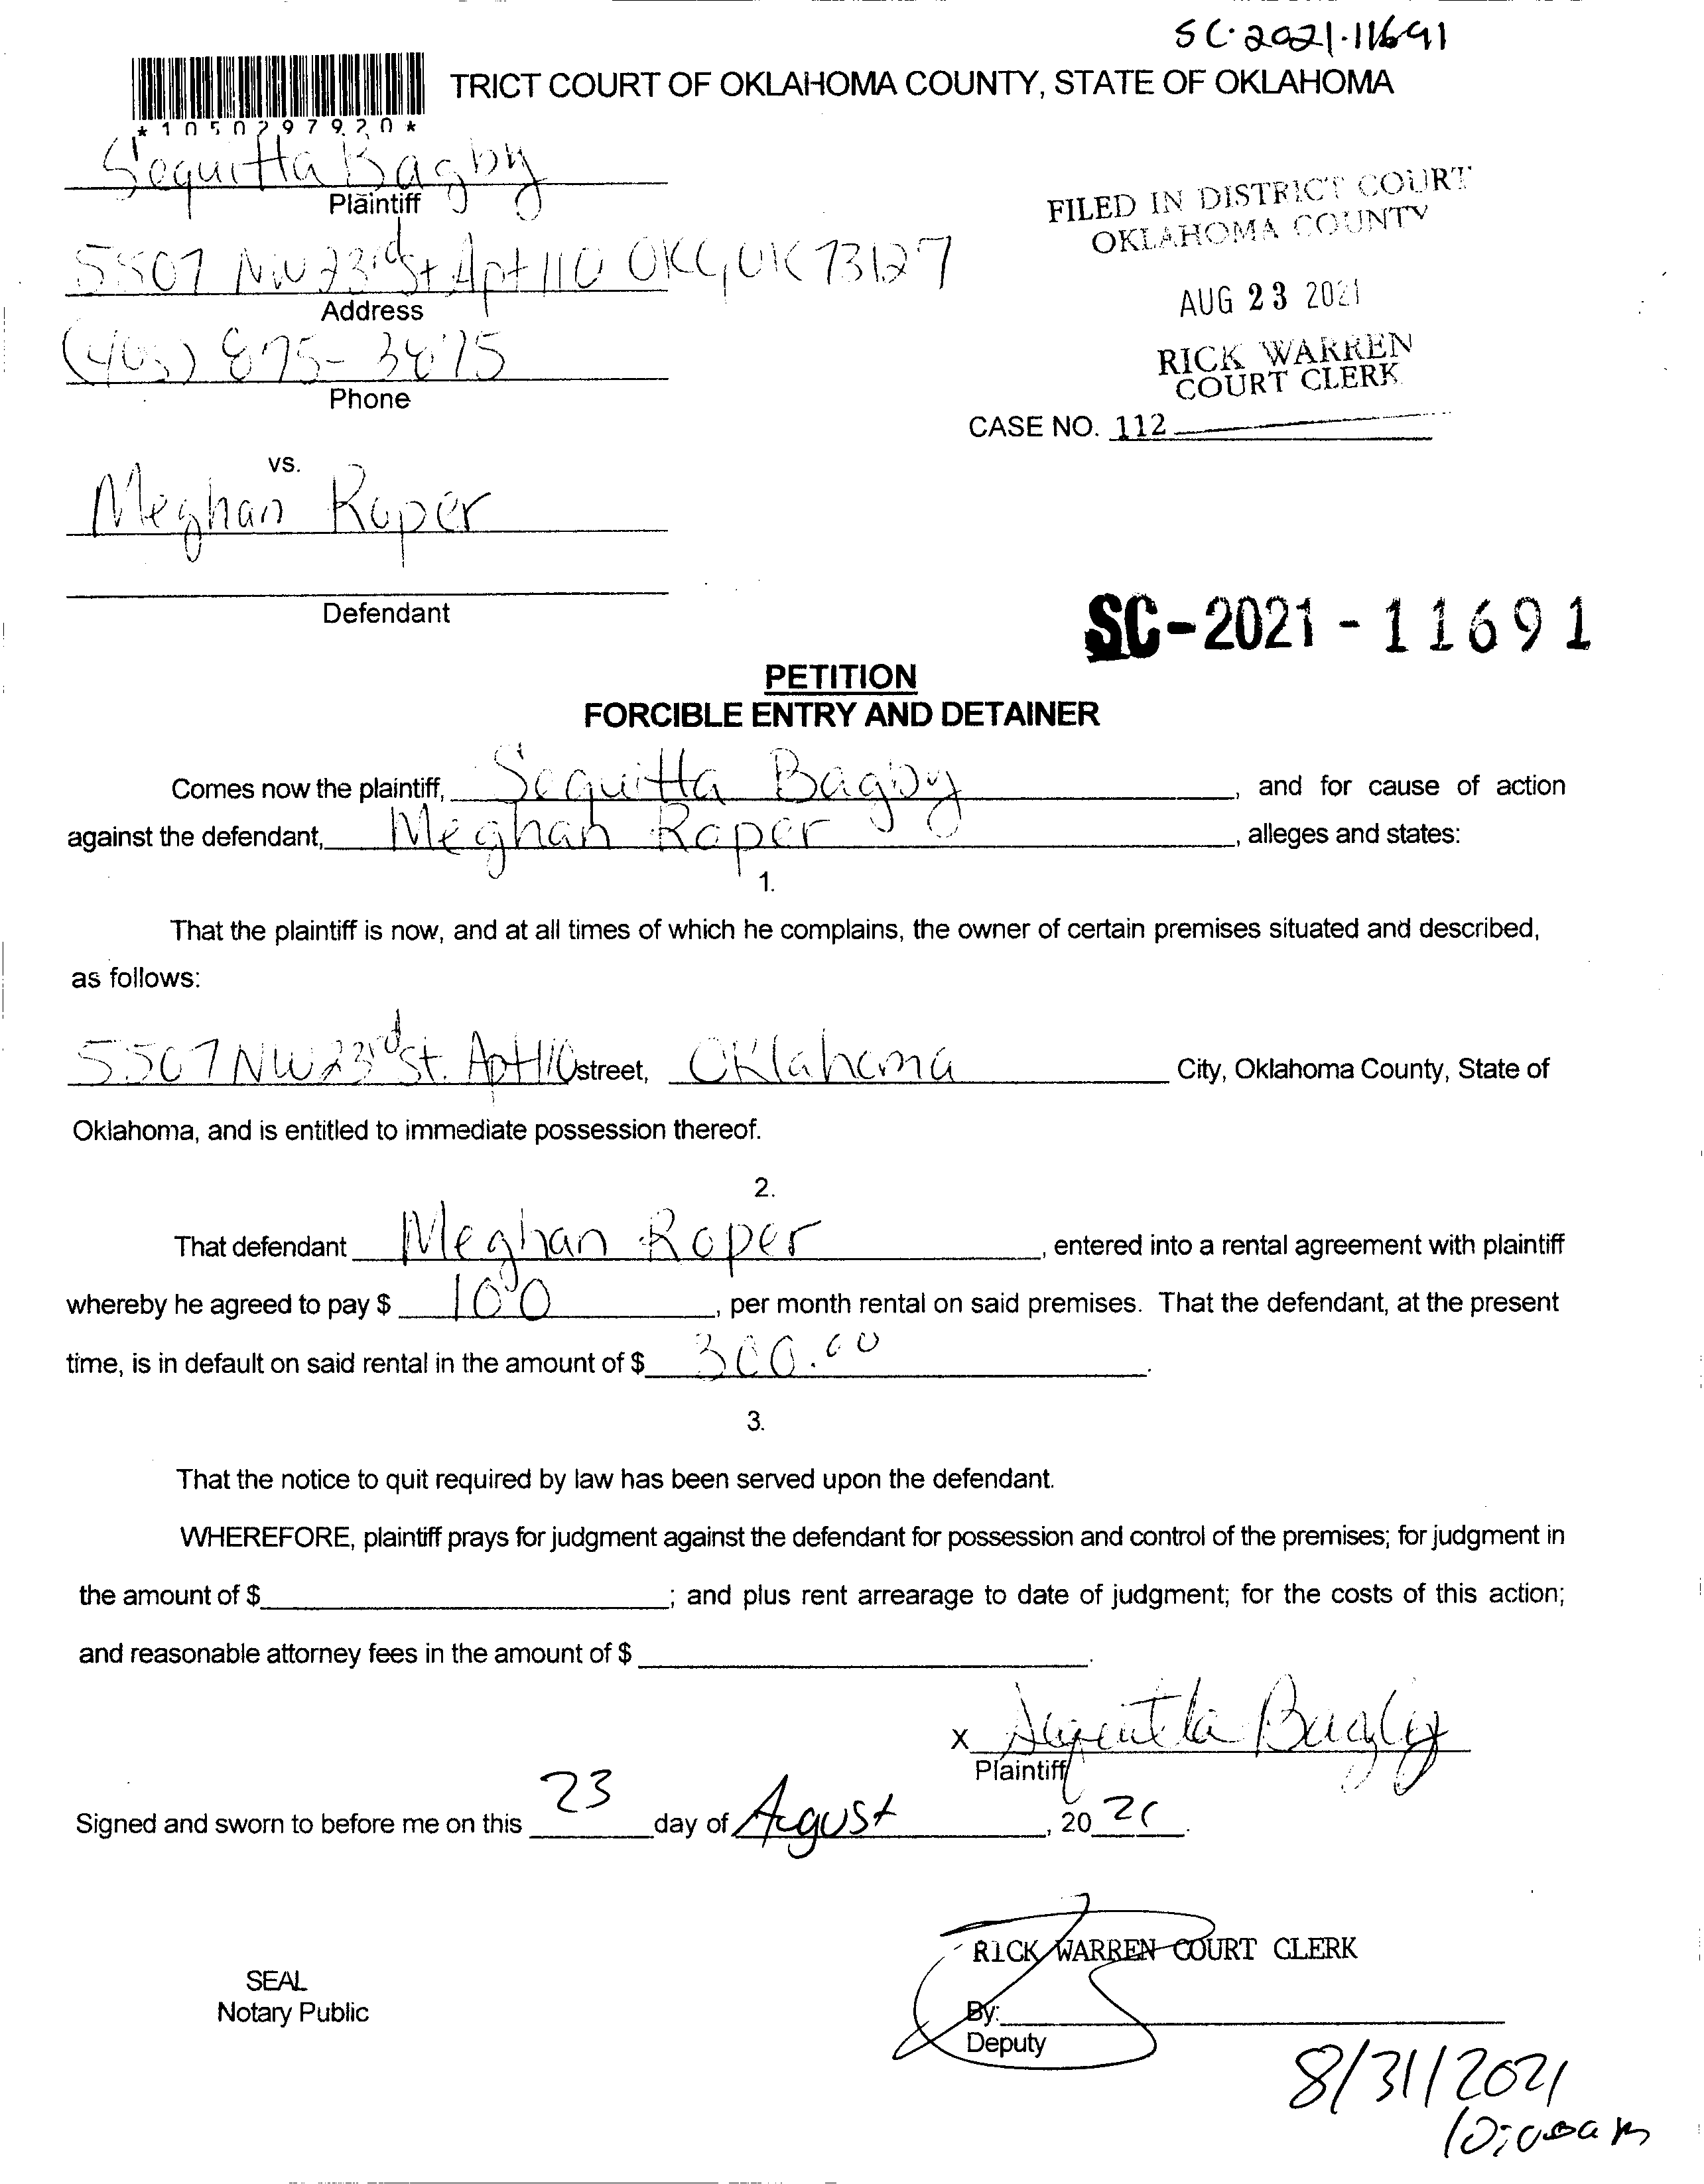 SC-2021-11691
TRICT COURT OF OKLAHOMA COUNTY, STATE OF OKLAHOMA
*1050297920*
Sequitta Bagby
Plaintiff
FILED IN DISTRICT COURT
OKLAHOMA COUNTY
5507 NW 23rd St Apt 110 OKC, OK 73127
Address
AUG 23 2021
(405)
Phone
RICK WARREN
COURT CLERK
CASE NO. 112
vs.
Meghan Roper
Defendant
SC-2021-11691
PETITION
FORCIBLE ENTRY AND DETAINER
Comes now the plaintiff, Sequitta Bagby, and for cause of action
against the defendant, Meghan Roper, alleges and states:
1.
That the plaintiff is now, and at all times of which he complains, the owner of certain premises situated and described,
as follows:
5507 NW 23rd St. Apt 110 street, Oklahoma City, Oklahoma County, State of
Oklahoma, and is entitled to immediate possession thereof.
2.
That defendant Meghan Roper, entered into a rental agreement with plaintiff
whereby he agreed to pay $ 100, per month rental on said premises. That the defendant, at the present
time, is in default on said rental in the amount of $ 300.00.
3.
That the notice to quit required by law has been served upon the defendant.
WHEREFORE, plaintiff prays for judgment against the defendant for possession and control of the premises; for judgment in
the amount of $ ; and plus rent arrearage to date of judgment; for the costs of this action;
and reasonable attorney fees in the amount of $ .
X Sequitta Bagby
Plaintiff
Signed and sworn to before me on this 23 day of Agust, 20 21.
RICK WARREN COURT CLERK
SEAL
Notary Public
By:
Deputy
8/31/2021
10:00am